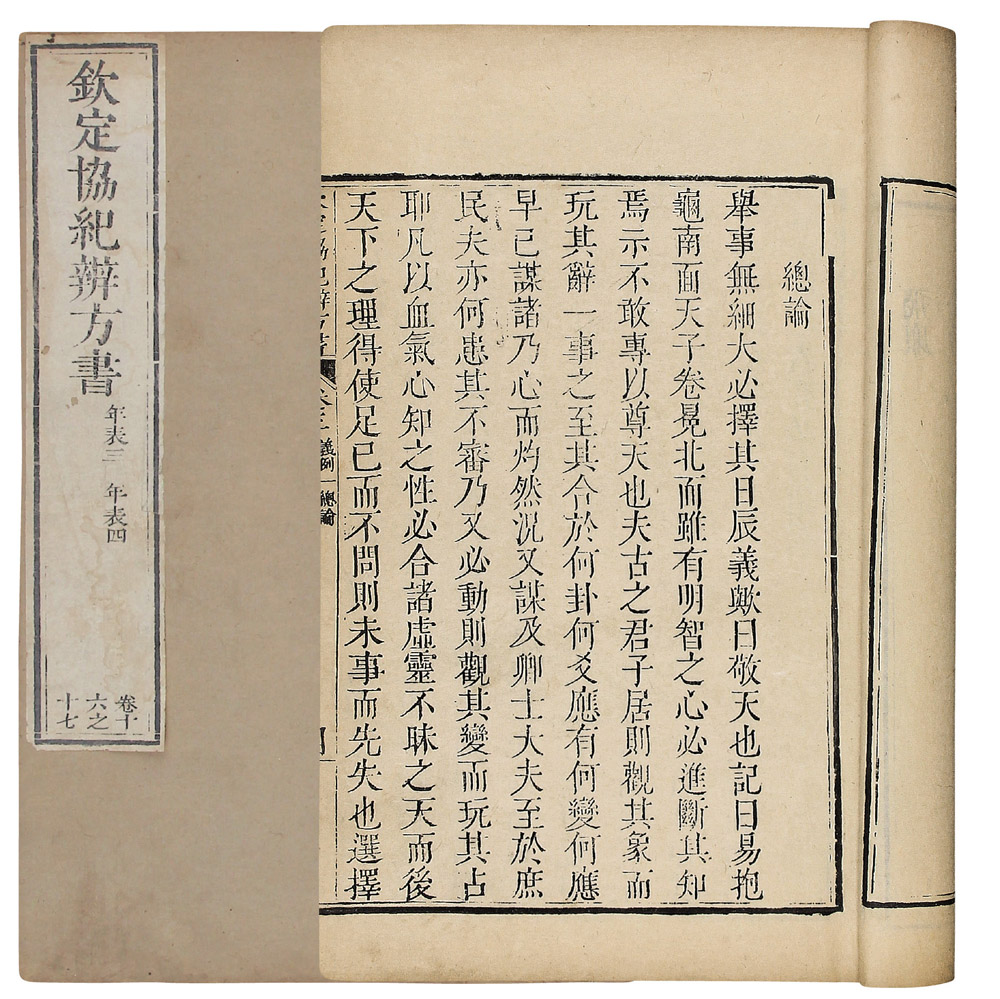 欽定協紀辨方書
年表三 年表四
卷十
六之
十七
總論
舉事無細大必擇其日辰義歟曰敬天也記曰易抱
龜南面天子卷冕北面雖有明智之心必進斷其知
焉示不敢專以尊天也夫古之君子居則觀其象而
玩其辭一事之至其合於何卦何爻應有何變何應
早已謀諸乃心而灼然況又謀及卿士大夫至於庶
民夫亦何患其不審乃又必動則觀其變而玩其占
耶凡以血氣心知之性必合諸虛靈不昧之天而後
天下之理得使足已而不問則未事而先失也選擇
協紀辨方書 卷三 義例一 總論